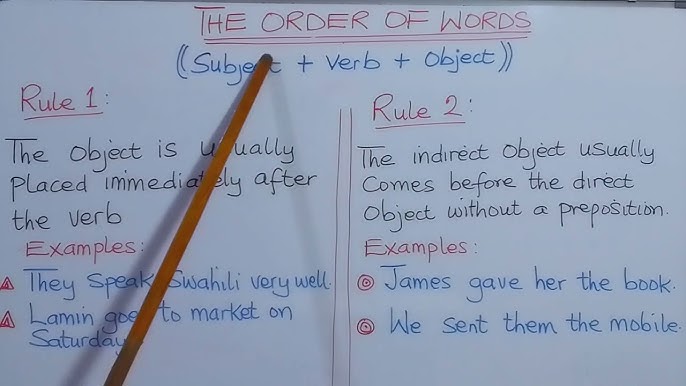 THE ORDER OF WORDS
((Subject + Verb + Object))
Rule 1:
The Object is usually
placed immediately after
the verb
Examples:
They Speak Swahili very well.
Lamin goes to market on
Saturday
Rule 2:
The indirect Object usually
Comes before the direct
Object without a preposition.
Examples:
James gave her the book.
We sent them the mobile.